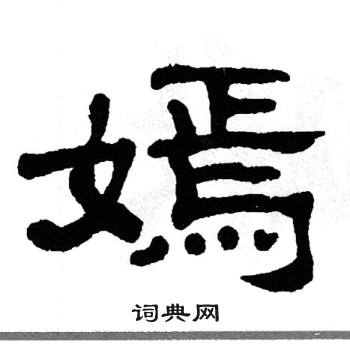 嫣
词典网